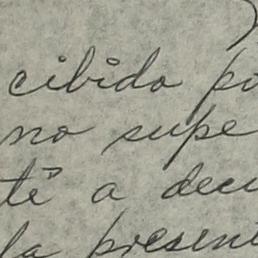 cibido po
no supe
té a decu
la present